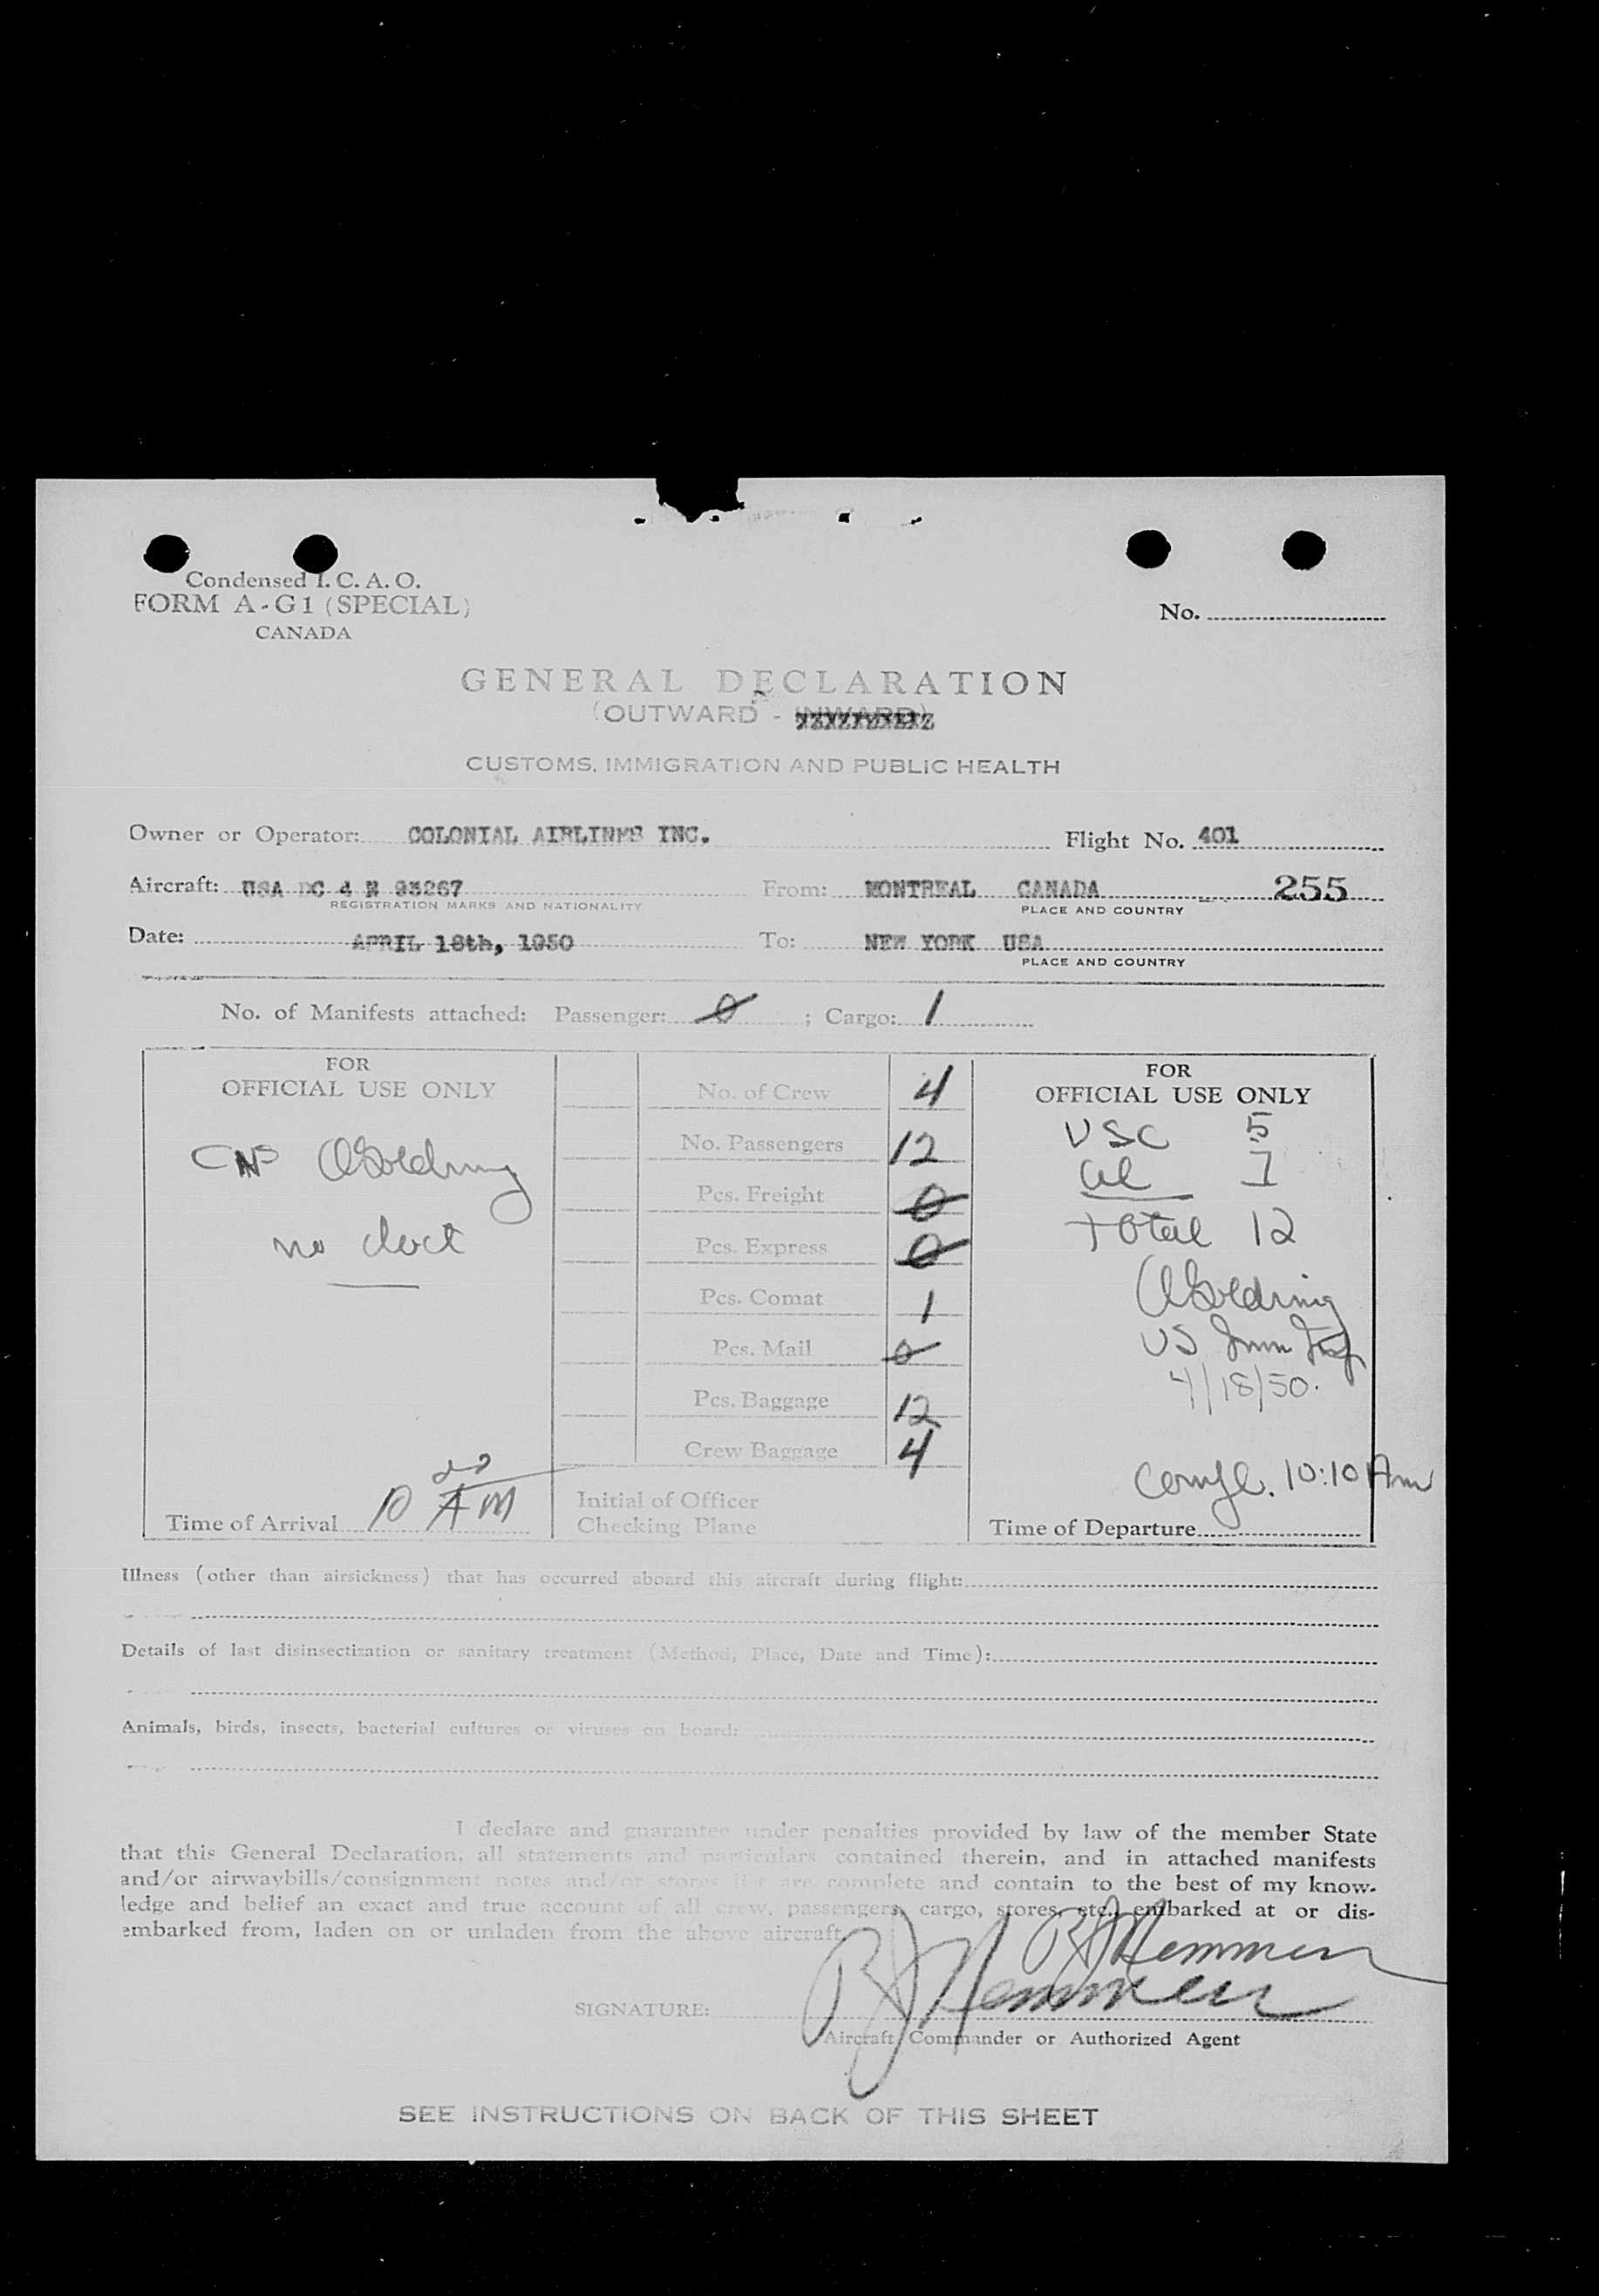 Condensed I. C. A. O.
FORM A - G 1 (SPECIAL)
CANADA
No.
GENERAL DECLARATION
(OUTWARD - INWARD)
CUSTOMS, IMMIGRATION AND PUBLIC HEALTH
Owner or Operator: COLONIAL AIRLINES INC. Flight No. 401
Aircraft: USA DC 4 N 93267 From: MONTREAL CANADA 255
REGISTRATION MARKS AND NATIONALITY PLACE AND COUNTRY
Date: APRIL 18th, 1950 To: NEW YORK USA
PLACE AND COUNTRY
No. of Manifests attached: Passenger: 0 ; Cargo: 1
FOR
OFFICIAL USE ONLY
AGoldring
no
Time of Arrival 10 22 AM
No. of Crew 4
No. Passengers 12
Pcs. Freight 0
Pcs. Express 0
Pcs. Comat 1
Pcs. Mail 0
Pcs. Baggage 12
Crew Baggage 4
Initial of Officer
Checking Plane
FOR
OFFICIAL USE ONLY
USC 5
al 7
total 12
AGoldring
US Imm Insp
4/18/50.
Compl. 10:10 Am
Time of Departure
Illness (other than airsickness) that has occurred aboard this aircraft during flight:
Details of last disinsectization or sanitary treatment (Method, Place, Date and Time):
Animals, birds, insects, bacterial cultures or viruses on board:
I declare and guarantee under penalties provided by law of the member State
that this General Declaration, all statements and particulars contained therein, and in attached manifests
and/or airwaybills/consignment notes and/or stores list are complete and contain to the best of my know-
ledge and belief an exact and true account of all crew, passengers, cargo, stores, etc., embarked at or dis-
embarked from, laden on or unladen from the above aircraft.
RJ Hemmen
SIGNATURE: RJ Hemmen
Aircraft Commander or Authorized Agent
SEE INSTRUCTIONS ON BACK OF THIS SHEET